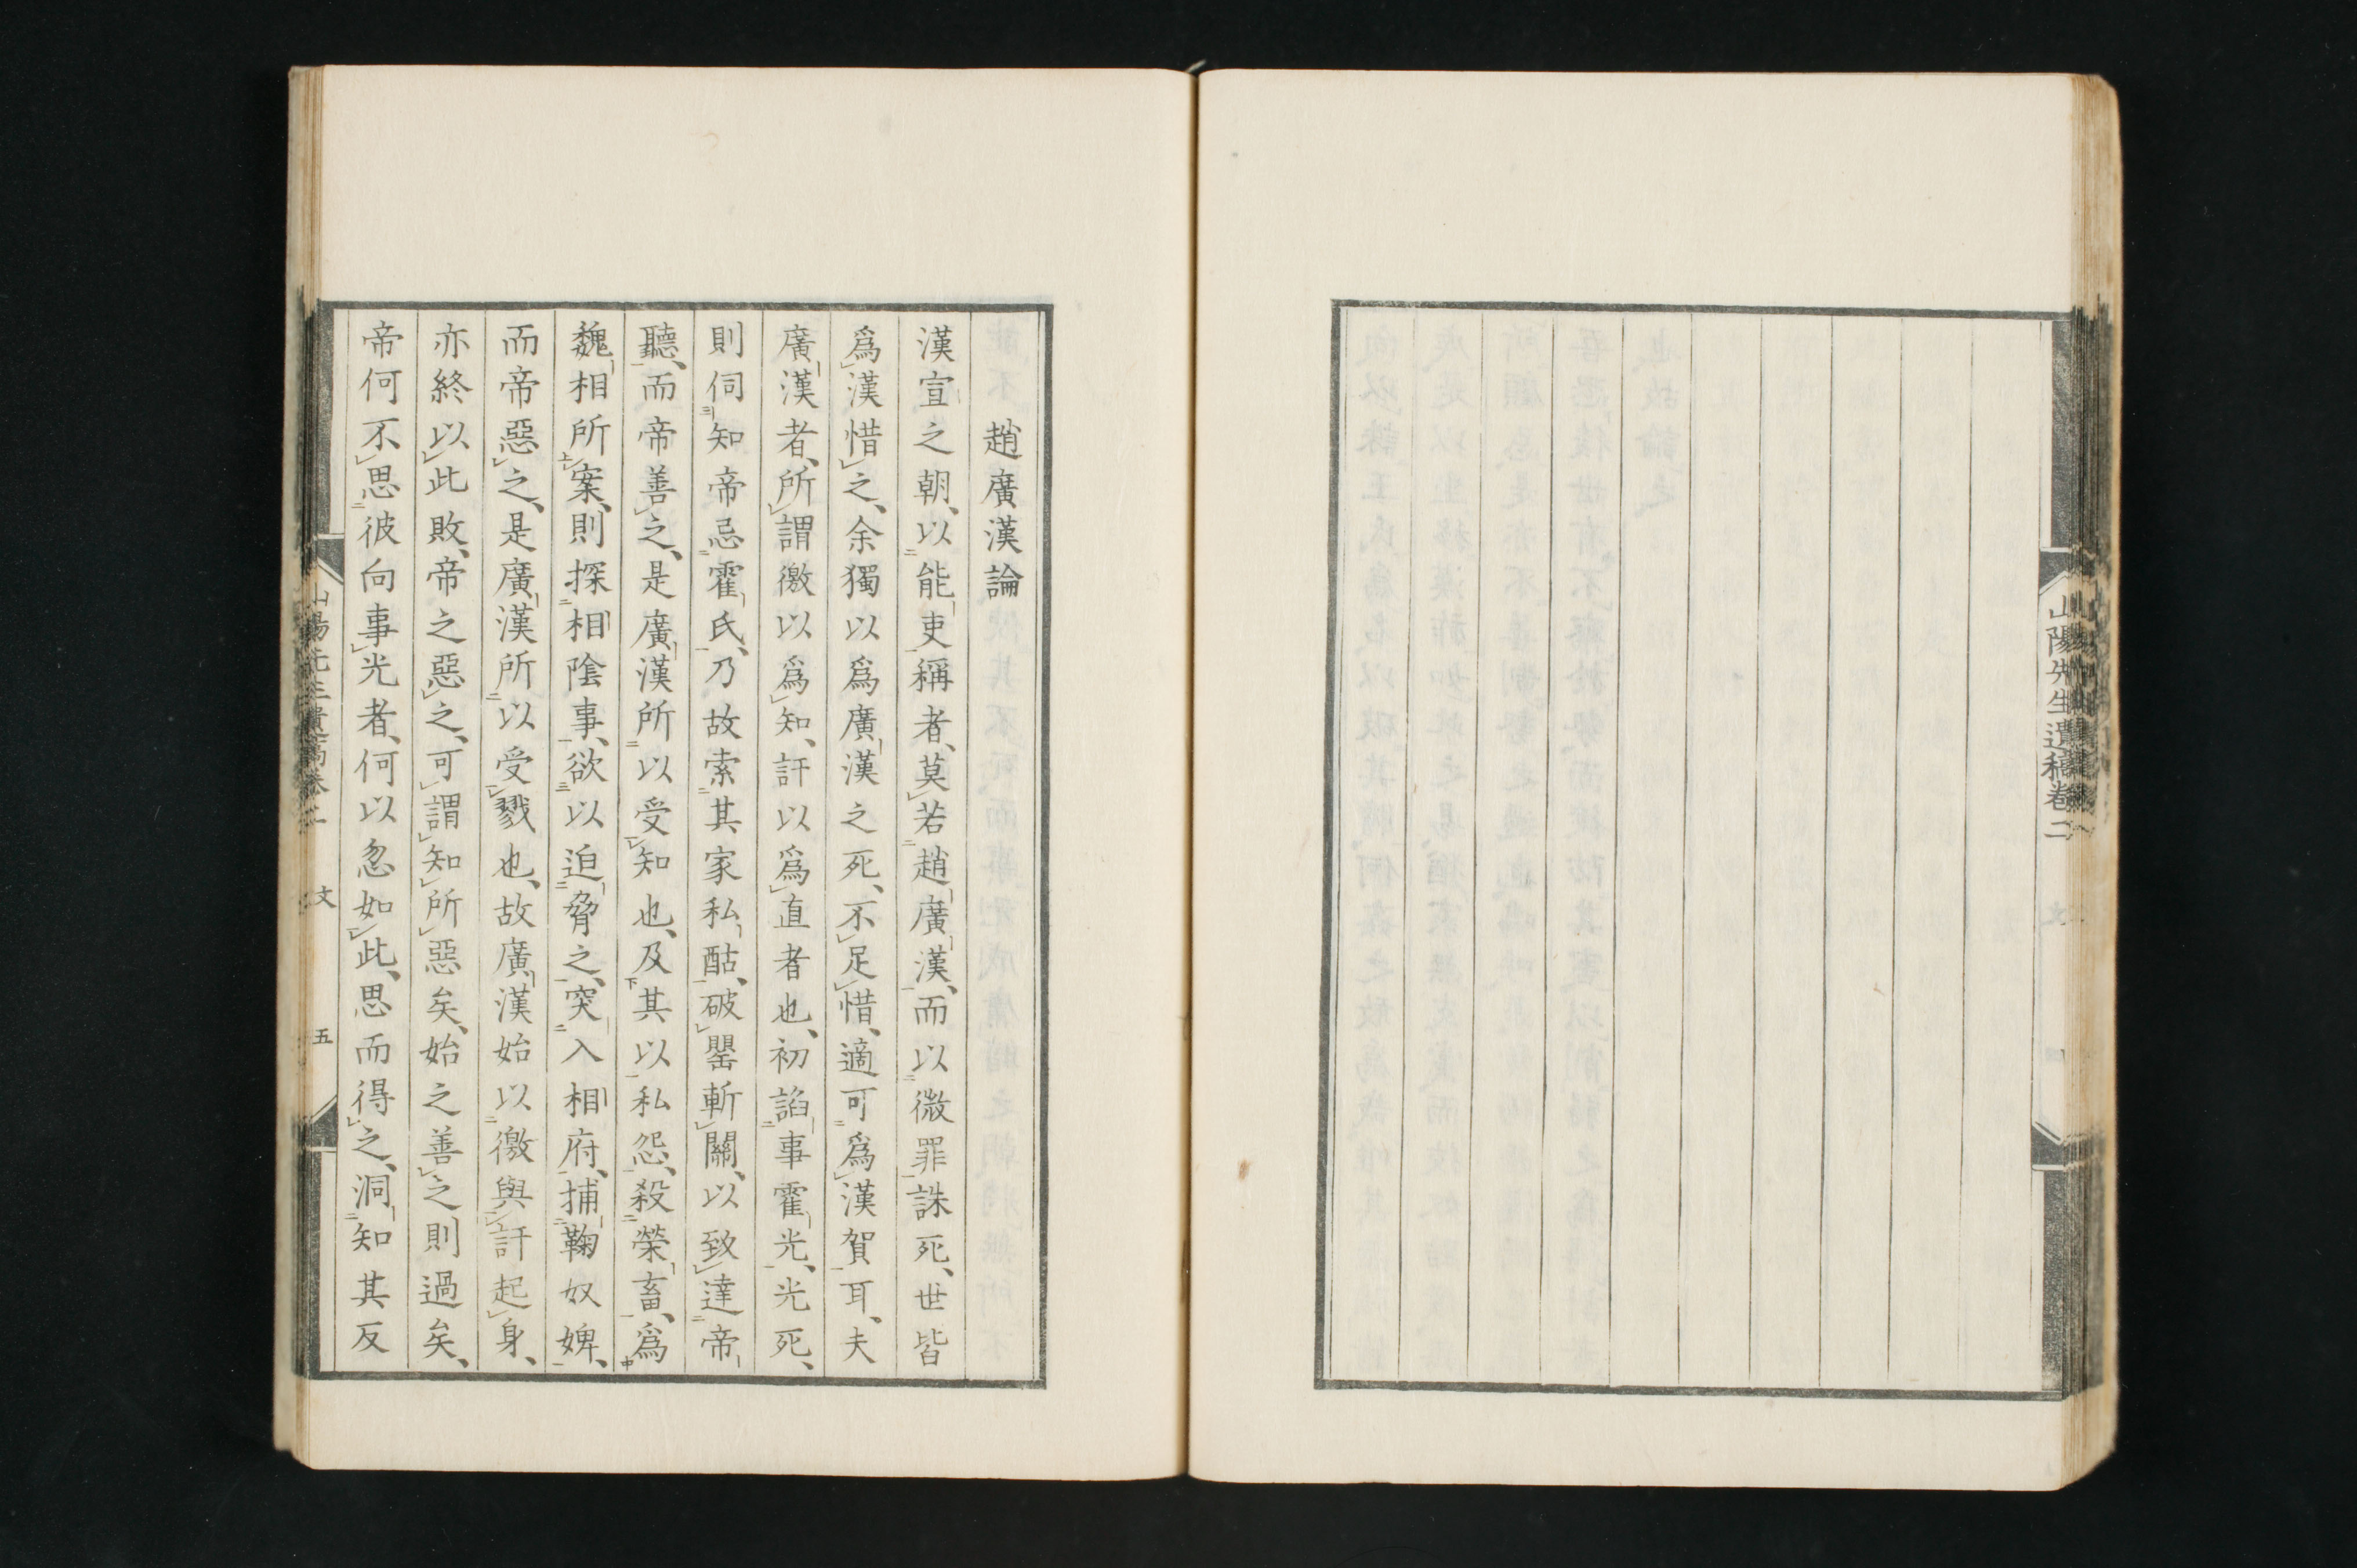 山陽先生遺稿卷二
趙廣漢論
漢宣之朝、以能吏稱者、莫若趙廣漢、而以微罪誅死、世皆
爲漢惜之、余獨以爲廣漢之死、不足惜、適可爲漢賀耳、夫
廣漢者、所謂徼以爲知、訐以爲直者也、初諂事霍光、光死、
則伺知帝忌霍氏、乃故索其家私酤、破罌斬關、以致達帝
聽、而帝善之、是廣漢所以受知也、及其以私怨、殺榮畜、爲
魏相所案、則探相陰事、欲以迫脅之、突入相府、捕鞠奴婢、
而帝惡之、是廣漢所以受戮也、故廣漢始以徼與訐起身、
亦終以此敗、帝之惡之、可謂知所惡矣、始之善之、則過矣、
帝何不思彼向事光者、何以忽如此、思而得之、洞知其反
山陽先生遺稿卷二 文 五